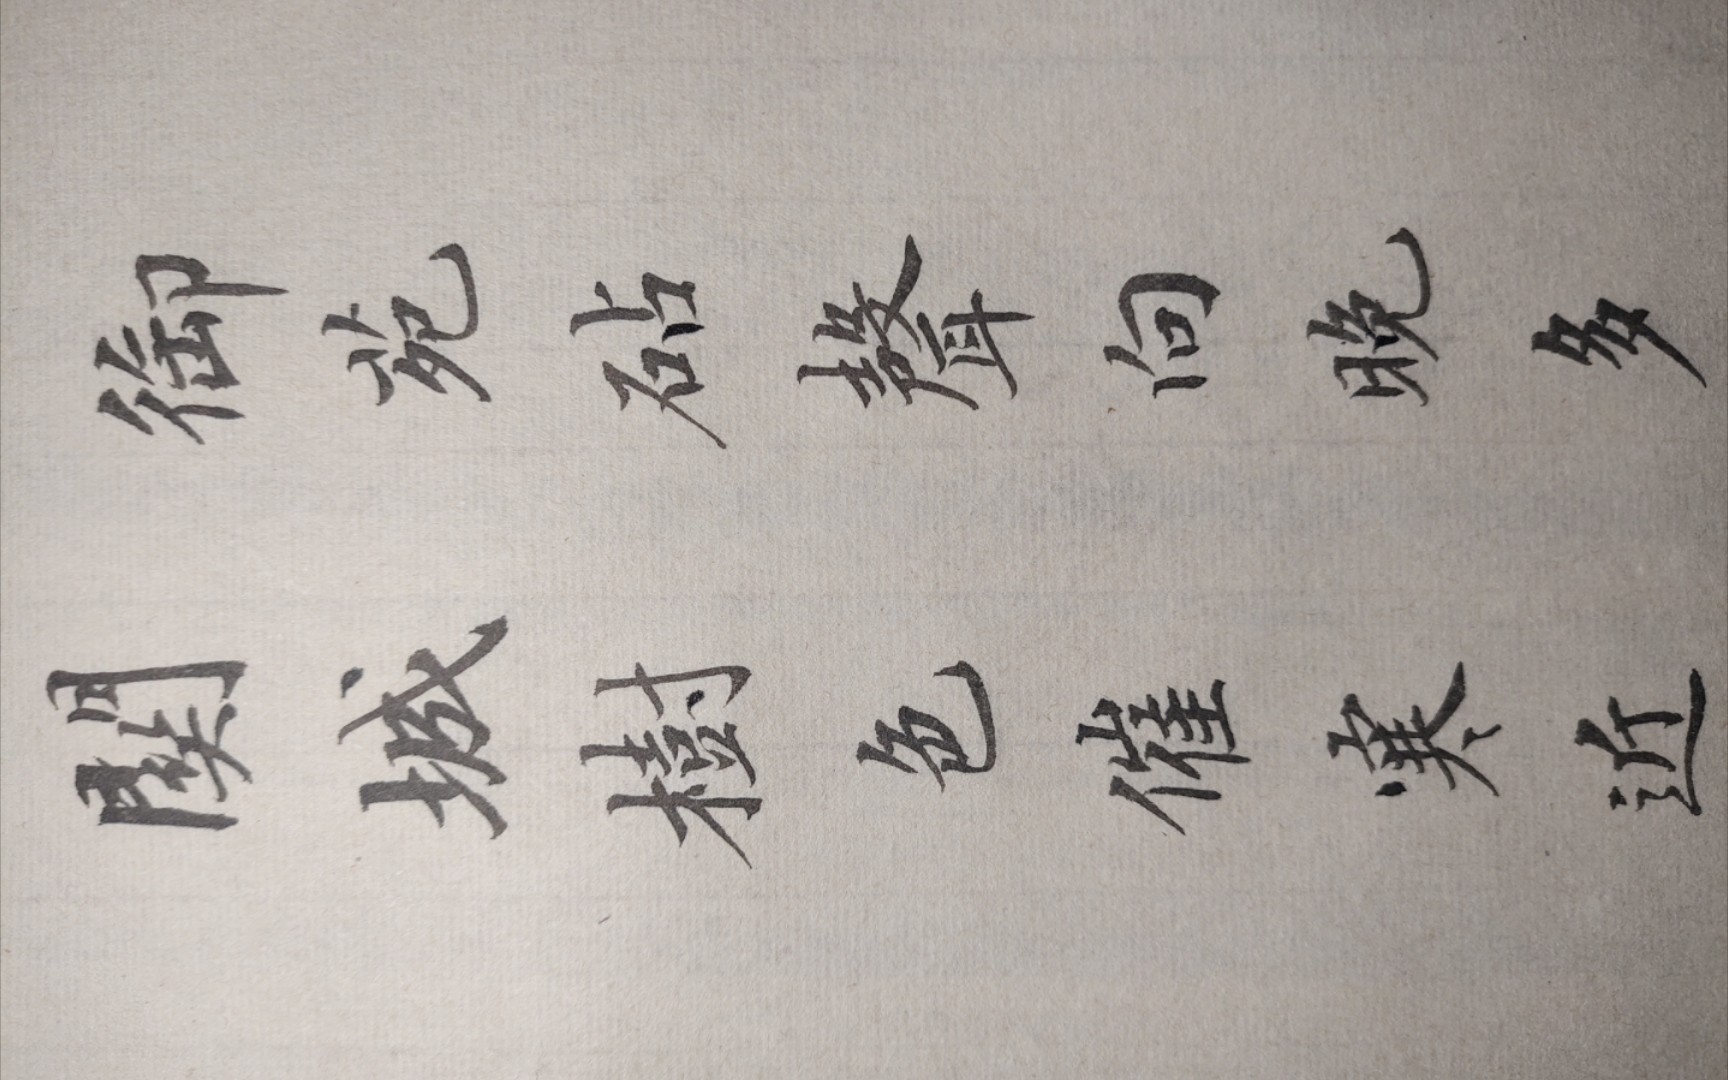 關城樹色催寒近
御苑砧聲向晚多